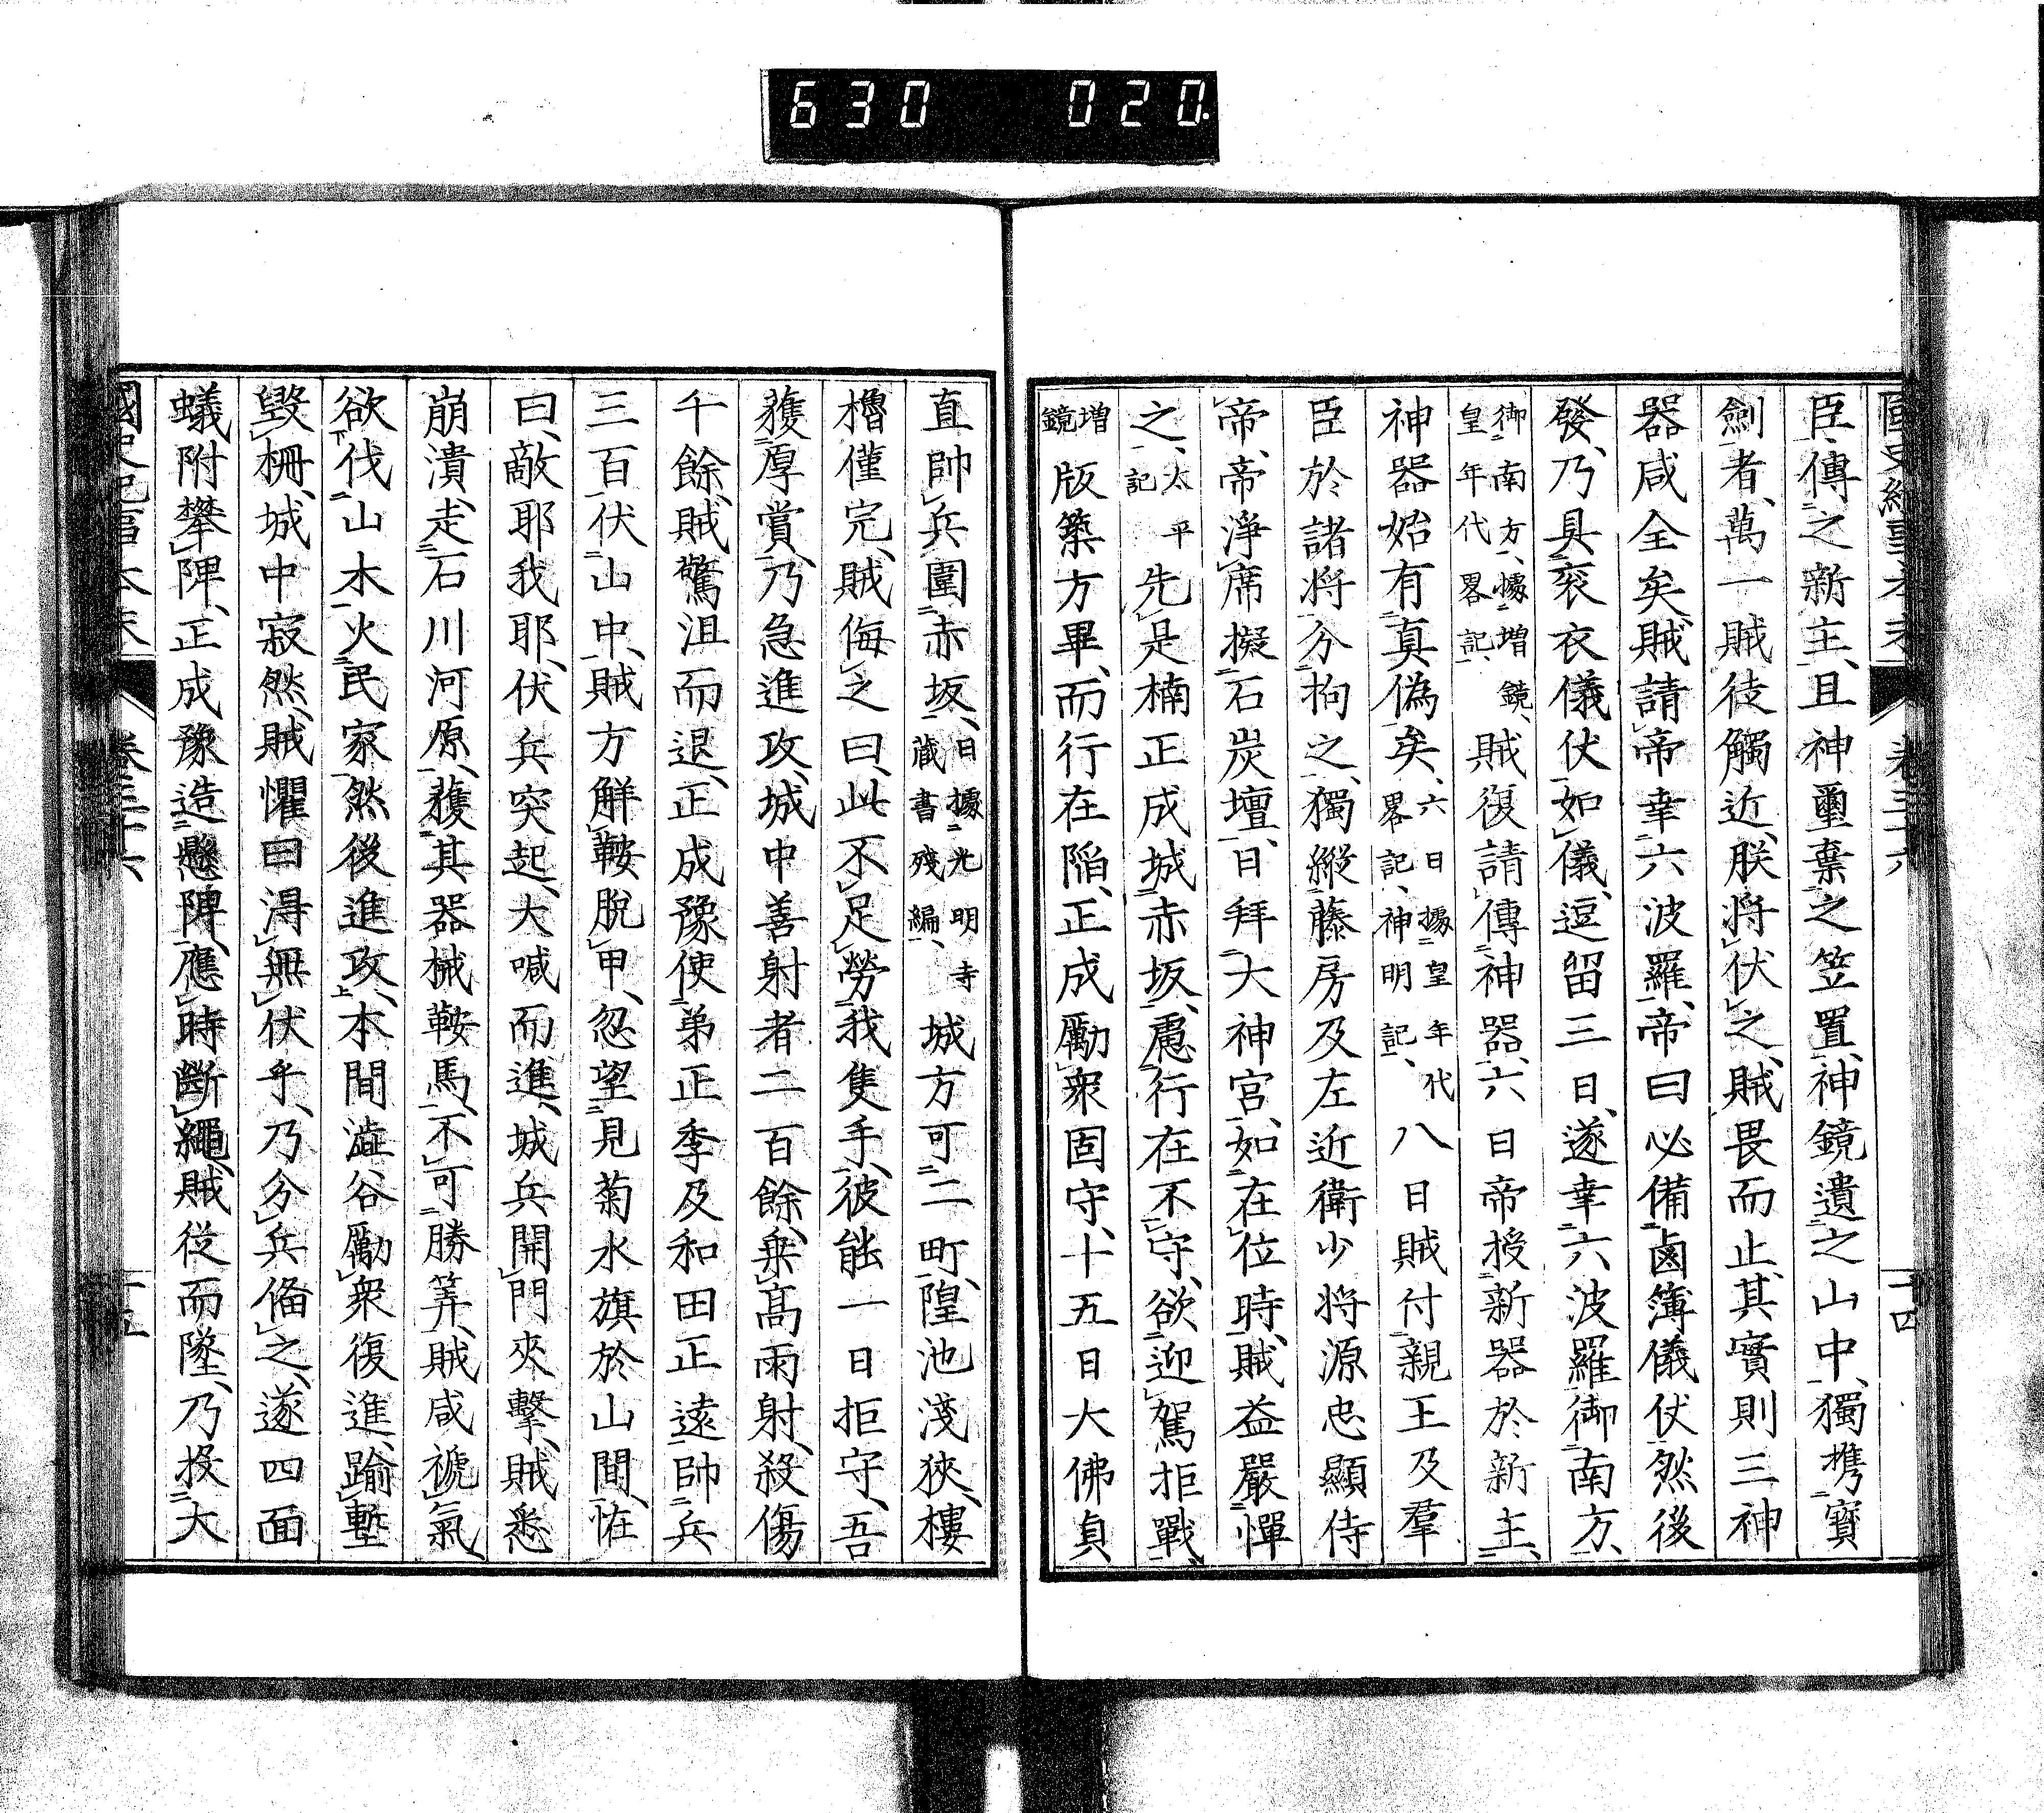 630 020.
國史紀事本末 卷三十六 十四
臣、傳之新主、且神璽棄之笠置、神鏡遺之山中、獨携寶
劍者、萬一賊徒觸近、朕將伏之、賊畏而止、其實則三神
器咸全矣、賊請帝幸六波羅、帝曰必備鹵簿儀伏然後
發、乃具袞衣儀伏如儀、逗留三日、遂幸六波羅御南方、
御南方、據增鏡、皇年代畧記、賊復請傳神器、六日帝授新器於新主、
神器始有真偽矣、六日據皇年代畧記、神明記、八日賊付親王及羣
臣於諸將分拘之、獨縱藤房及左近衛少將源忠顯侍
帝、帝淨席擬石炭壇、日拜大神宮、如在位時、賊益嚴憚
之、太平記先是楠正成城赤坂、慮行在不守、欲迎駕拒戰、
增鏡版築方畢、而行在陷、正成勵衆固守、十五日大佛貞
直帥兵圍赤坂、日據光明寺藏書殘編、城方可二町、隍池淺狹、樓
櫓僅完、賊侮之曰、此不足勞我隻手、彼能一日拒守、吾
獲厚賞、乃急進攻、城中善射者二百餘、乘高雨射、殺傷
千餘、賊驚沮而退、正成豫使弟正季及和田正遠帥兵
三百伏山中、賊方解鞍脫甲、忽望見菊水旗於山間、恠
曰、敵耶我耶、伏兵突起、大喊而進、城兵開門夾擊、賊悉
崩潰、走石川河原、獲其器械鞍馬、不可勝筭、賊咸褫氣、
欲伐山木火民家、然後進攻、本間澁谷勵衆復進、踰塹
毀柵、城中寂然、賊懼曰得無伏乎、乃分兵偹之、遂四面
蟻附攀陴、正成豫造懸陴、應時斷繩、賊從而墜、乃投大
國史紀事本末 卷三十六 十五